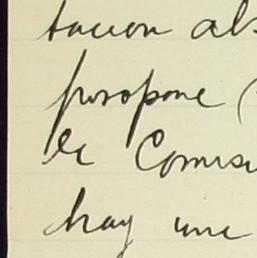 tacion abs
posopone (
le Comisi
hay una